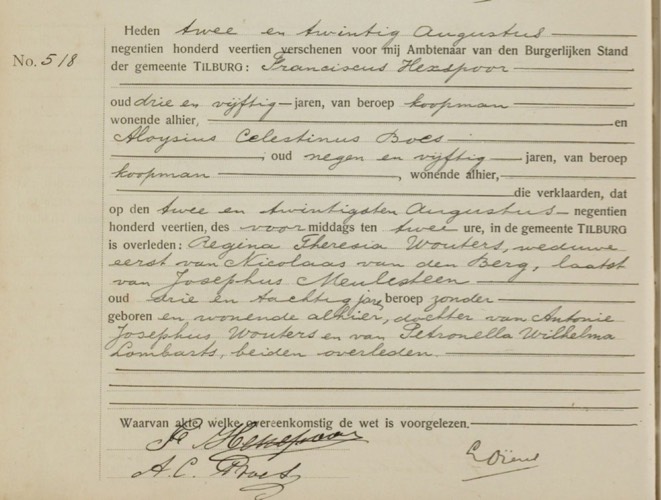 Heden twee en twintig Augustus
negentien honderd veertien verschenen voor mij Ambtenaar van den Burgerlijken Stand
No. 518
der gemeente TILBURG: Franciscus Hexspoor
oud drie en vijftig jaren, van beroep koopman
wonende alhier, en
Aloysius Celestinus Boes
; oud negen en vijftig jaren, van beroep
koopman, wonende alhier,
die verklaarden, dat
op den twee en twintigsten Augustus negentien
honderd veertien, des voormiddags ten twee ure, in de gemeente TILBURG
is overleden: Regina Theresia Wouters, weduwe
eerst van Nicolaas van den Berg, laatst
van Josephus Meulesteen
oud drie en tachtig jaren beroep zonder
geboren en wonende alhier, dochter van Antonie
Josephus Wouters en van Petronella Wilhelma
Lombarts, beiden overleden.
Waarvan akte, welke overeenkomstig de wet is voorgelezen.
Fr Hexspoor
A. C. Boes